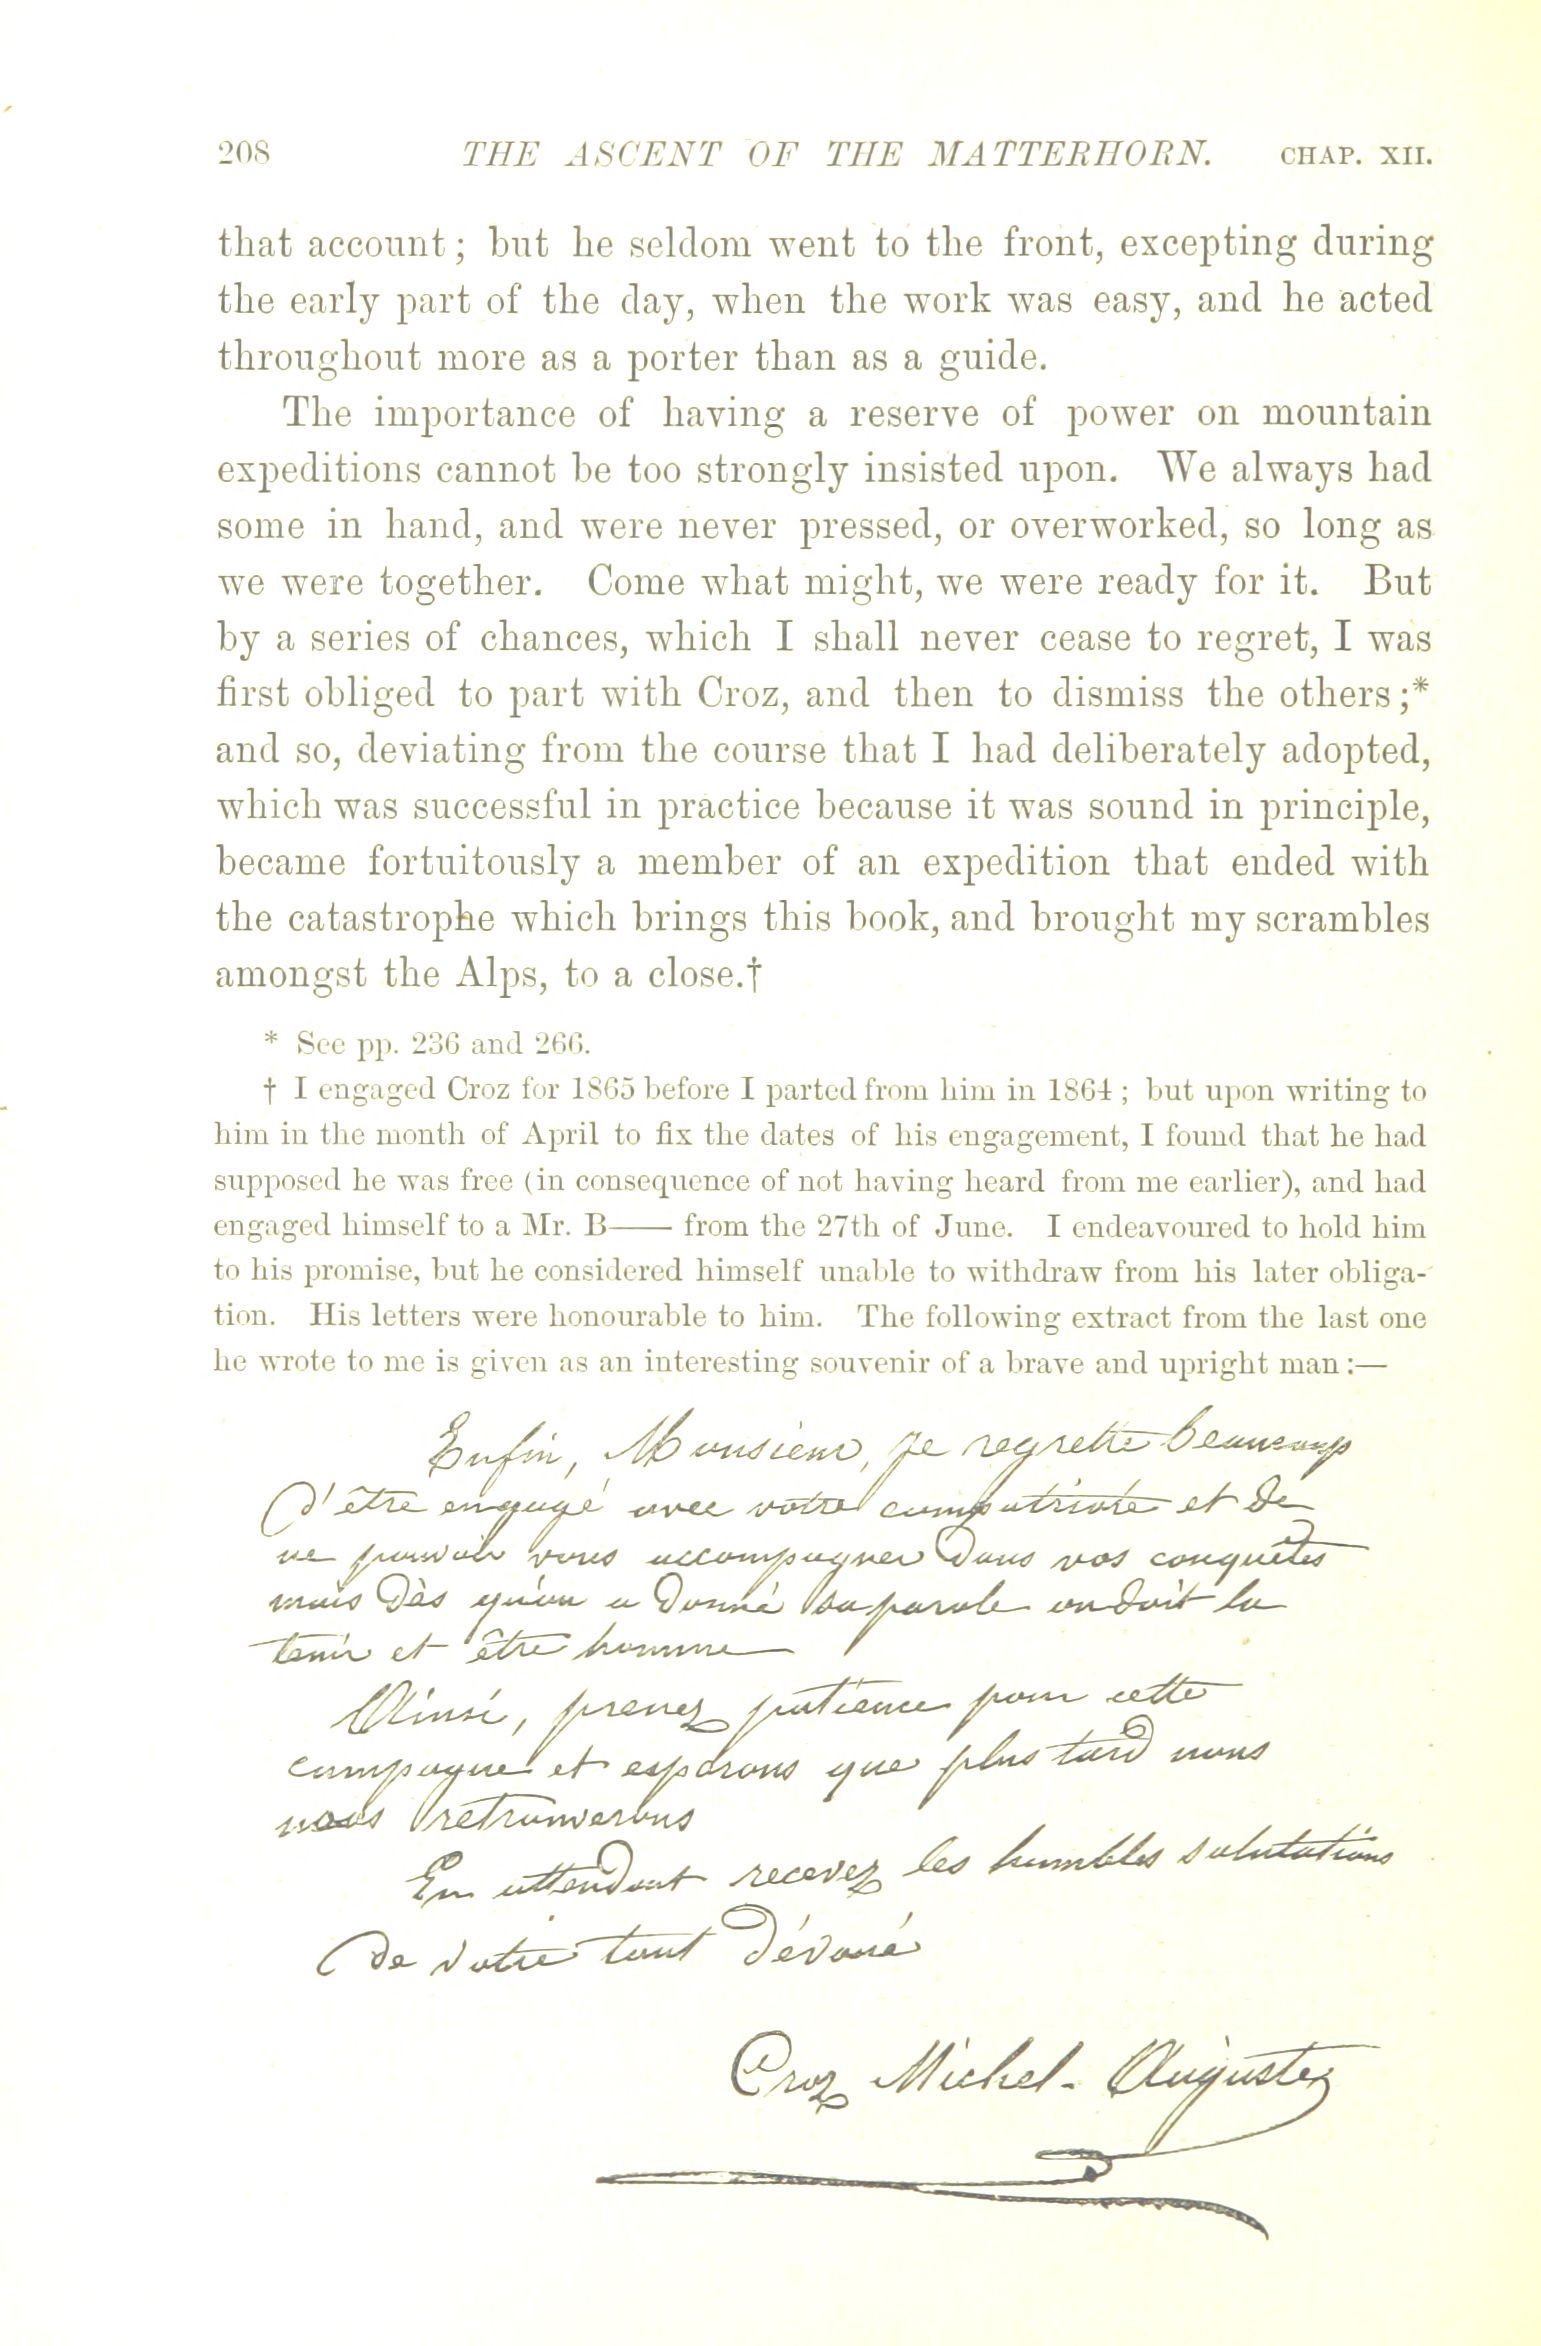 208 THE ASCENT OF THE MATTERHORN. CHAP. XII.
that account; but he seldom went to the front, excepting during
the early part of the day, when the work was easy, and he acted
throughout more as a porter than as a guide.
The importance of having a reserve of power on mountain
expeditions cannot be too strongly insisted upon. We always had
some in hand, and were never pressed, or overworked, so long as
we were together. Come what might, we were ready for it. But
by a series of chances, which I shall never cease to regret, I was
first obliged to part with Croz, and then to dismiss the others;*
and so, deviating from the course that I had deliberately adopted,
which was successful in practice because it was sound in principle,
became fortuitously a member of an expedition that ended with
the catastrophe which brings this book, and brought my scrambles
amongst the Alps, to a close.†
* See pp. 236 and 266.
† I engaged Croz for 1865 before I parted from him in 1864; but upon writing to
him in the month of April to fix the dates of his engagement, I found that he had
supposed he was free (in consequence of not having heard from me earlier), and had
engaged himself to a Mr. B—— from the 27th of June. I endeavoured to hold him
to his promise, but he considered himself unable to withdraw from his later obliga-
tion. His letters were honourable to him. The following extract from the last one
he wrote to me is given as an interesting souvenir of a brave and upright man:—
Enfin, Monsieur, je regrette beaucoup
d'être engagé avec votre compatriote et de
ne pouvoir vous accompagner dans vos conquêtes
mais dès qu'on a donné sa parole on doit la
tenir et être homme
Ainsi, prenez patience pour cette
campagne et esperons que plus tard nous
nous retrouverons
En attendant recevez les humbles salutations
de votre tout dévoué
Croz Michel-Auguste